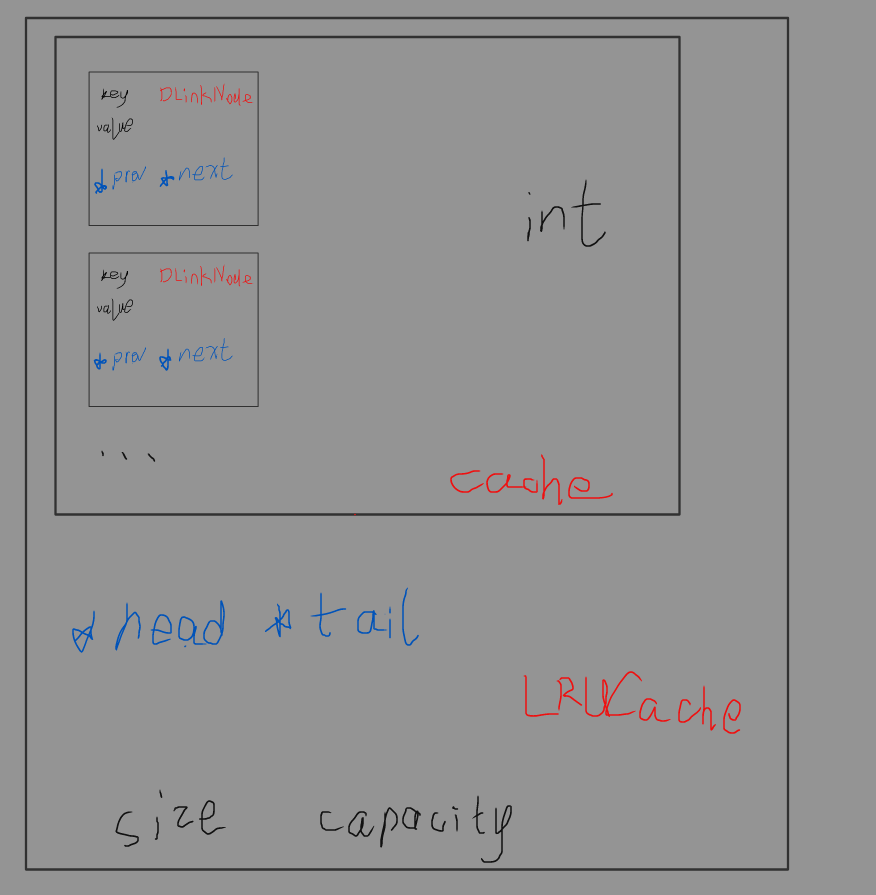 key DLinkNode
value
*prev *next
int
key DLinkNode
value
*prev *next
...
cache
*head *tail
LRUCache
size capacity